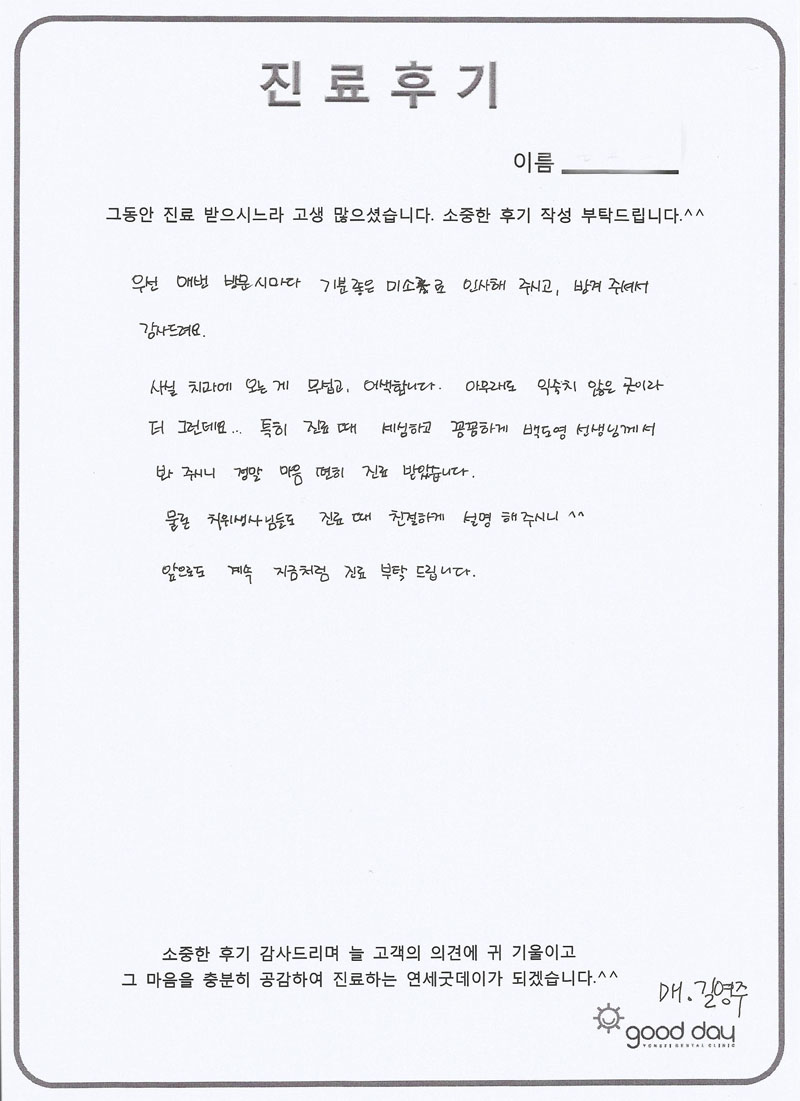 진료후기
이름
그동안 진료 받으시느라 고생 많으셨습니다. 소중한 후기 작성 부탁드립니다.^^
우선 매번 방문시마다 기분 좋은 미소로 인사해 주시고, 반겨 주셔서
감사드려요.
사실 치과에 오는 게 무섭고, 어색합니다. 아무래도 익숙치 않은 곳이라
더 그런데요... 특히 진료 때 세심하고 꼼꼼하게 백도영 선생님께서
봐 주시니 정말 마음 편히 진료 받았습니다.
물론 치위생사님들도 진료 때 친절하게 설명 해주시니 ^^
앞으로도 계속 지금처럼 진료 부탁 드립니다.
소중한 후기 감사드리며 늘 고객의 의견에 귀 기울이고
그 마음을 충분히 공감하여 진료하는 연세굿데이가 되겠습니다.^^
DH. 길영주
good day
YONSEI DENTAL CLINIC